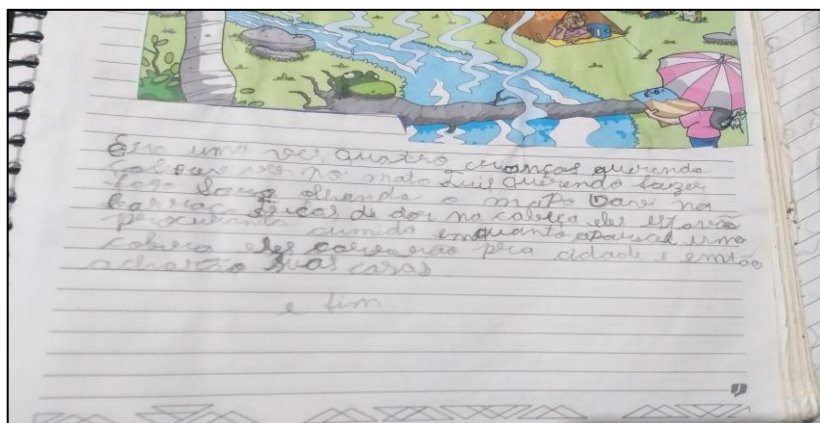 Era uma vez quatro crianças querendo
no mato Luis querendo fazer
fogo Sara olhando o mapo Dani na
barraca de dor na cabeça eles estavão
procurando sumido enquanto apareceu uma
cobera eles corerão pra cidade e emtão
acharão suas casas
e fim